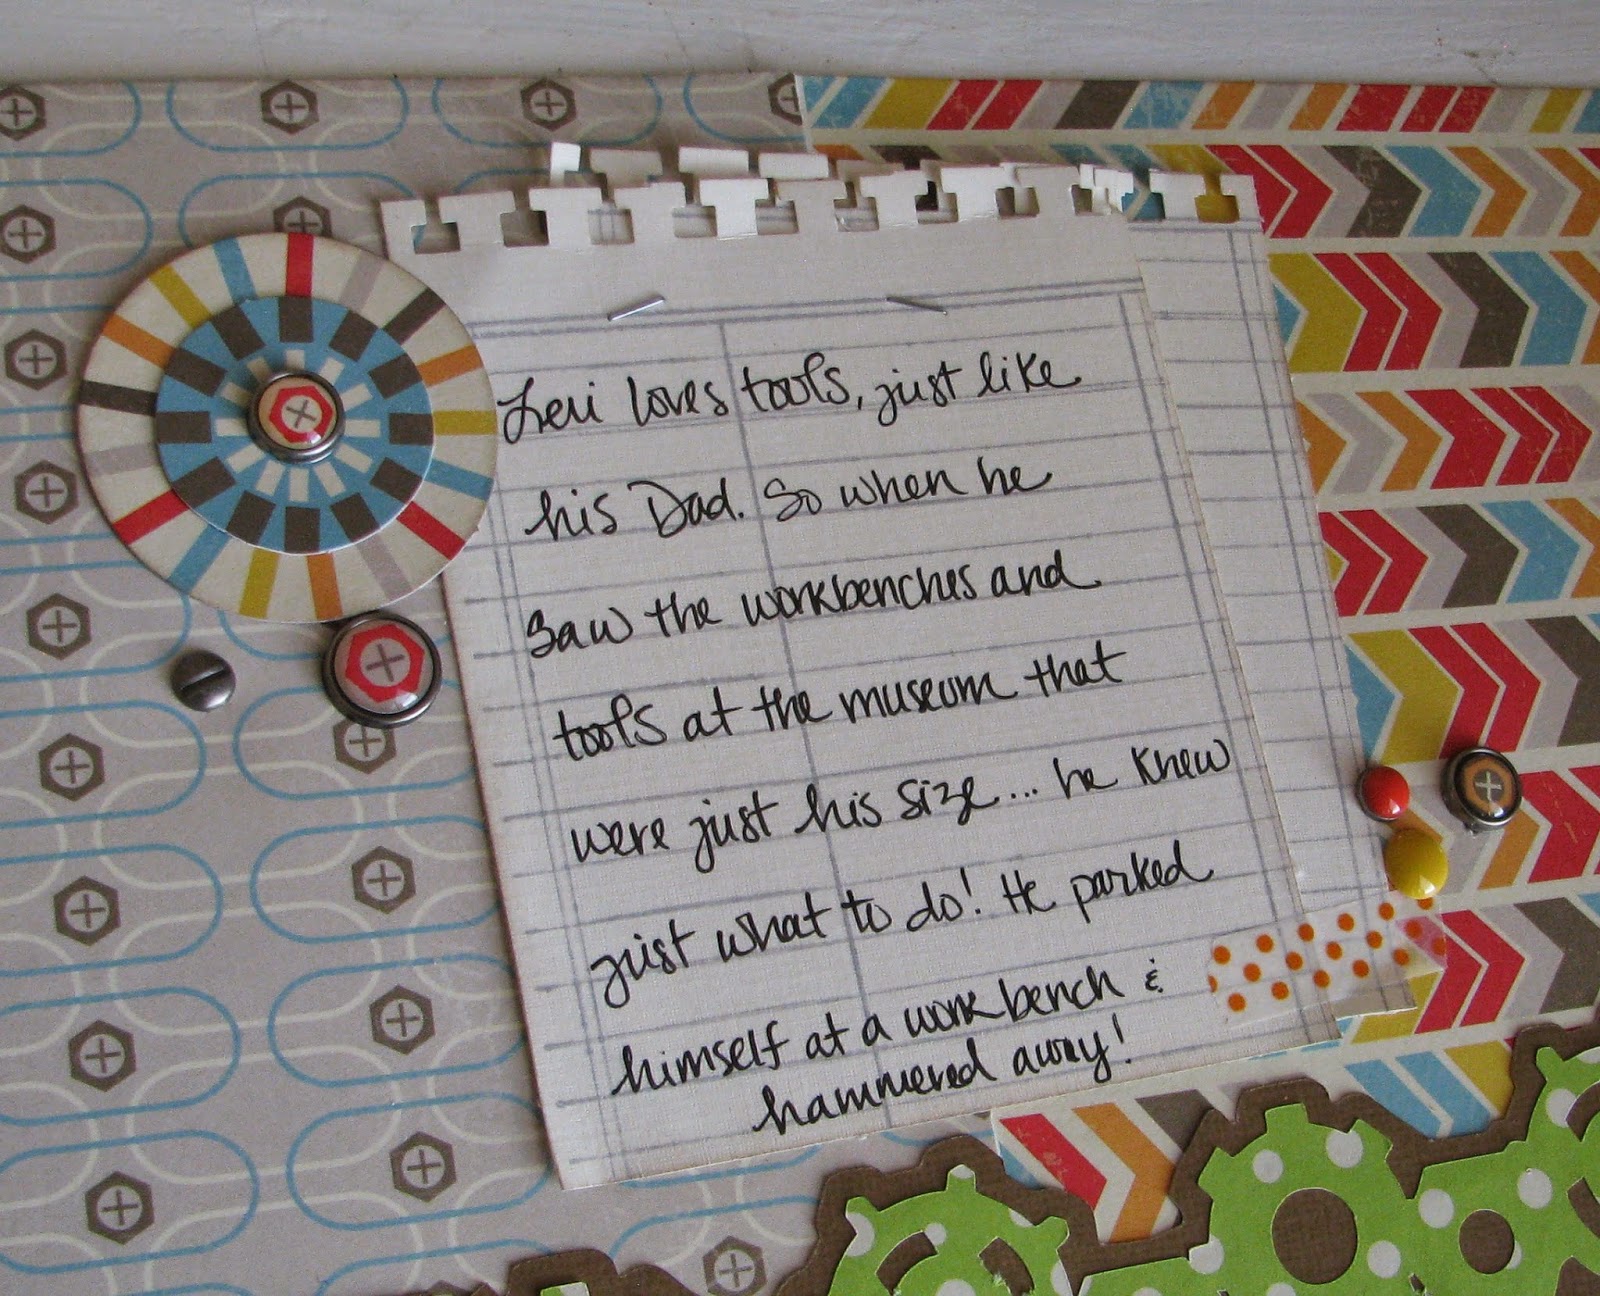 Levi loves tools, just like
his Dad. So when he
saw the workbenches and
tools at the museum that
were just his size... he knew
just what to do! He parked
himself at a workbench &
hammered away!